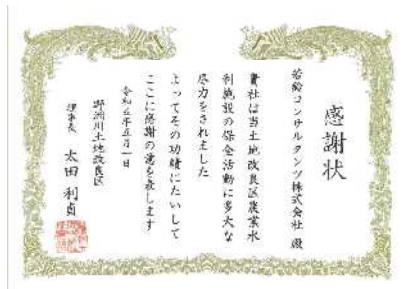 感謝状
若鈴コンサルタンツ株式会社 殿
貴社は当土地改良区農業水
利施設の保全活動に多大な
尽力をされました
よってその功績にたいして
ここに感謝の意を表します
令和五年五月一日
野洲川土地改良区
理事長 太田 利貞